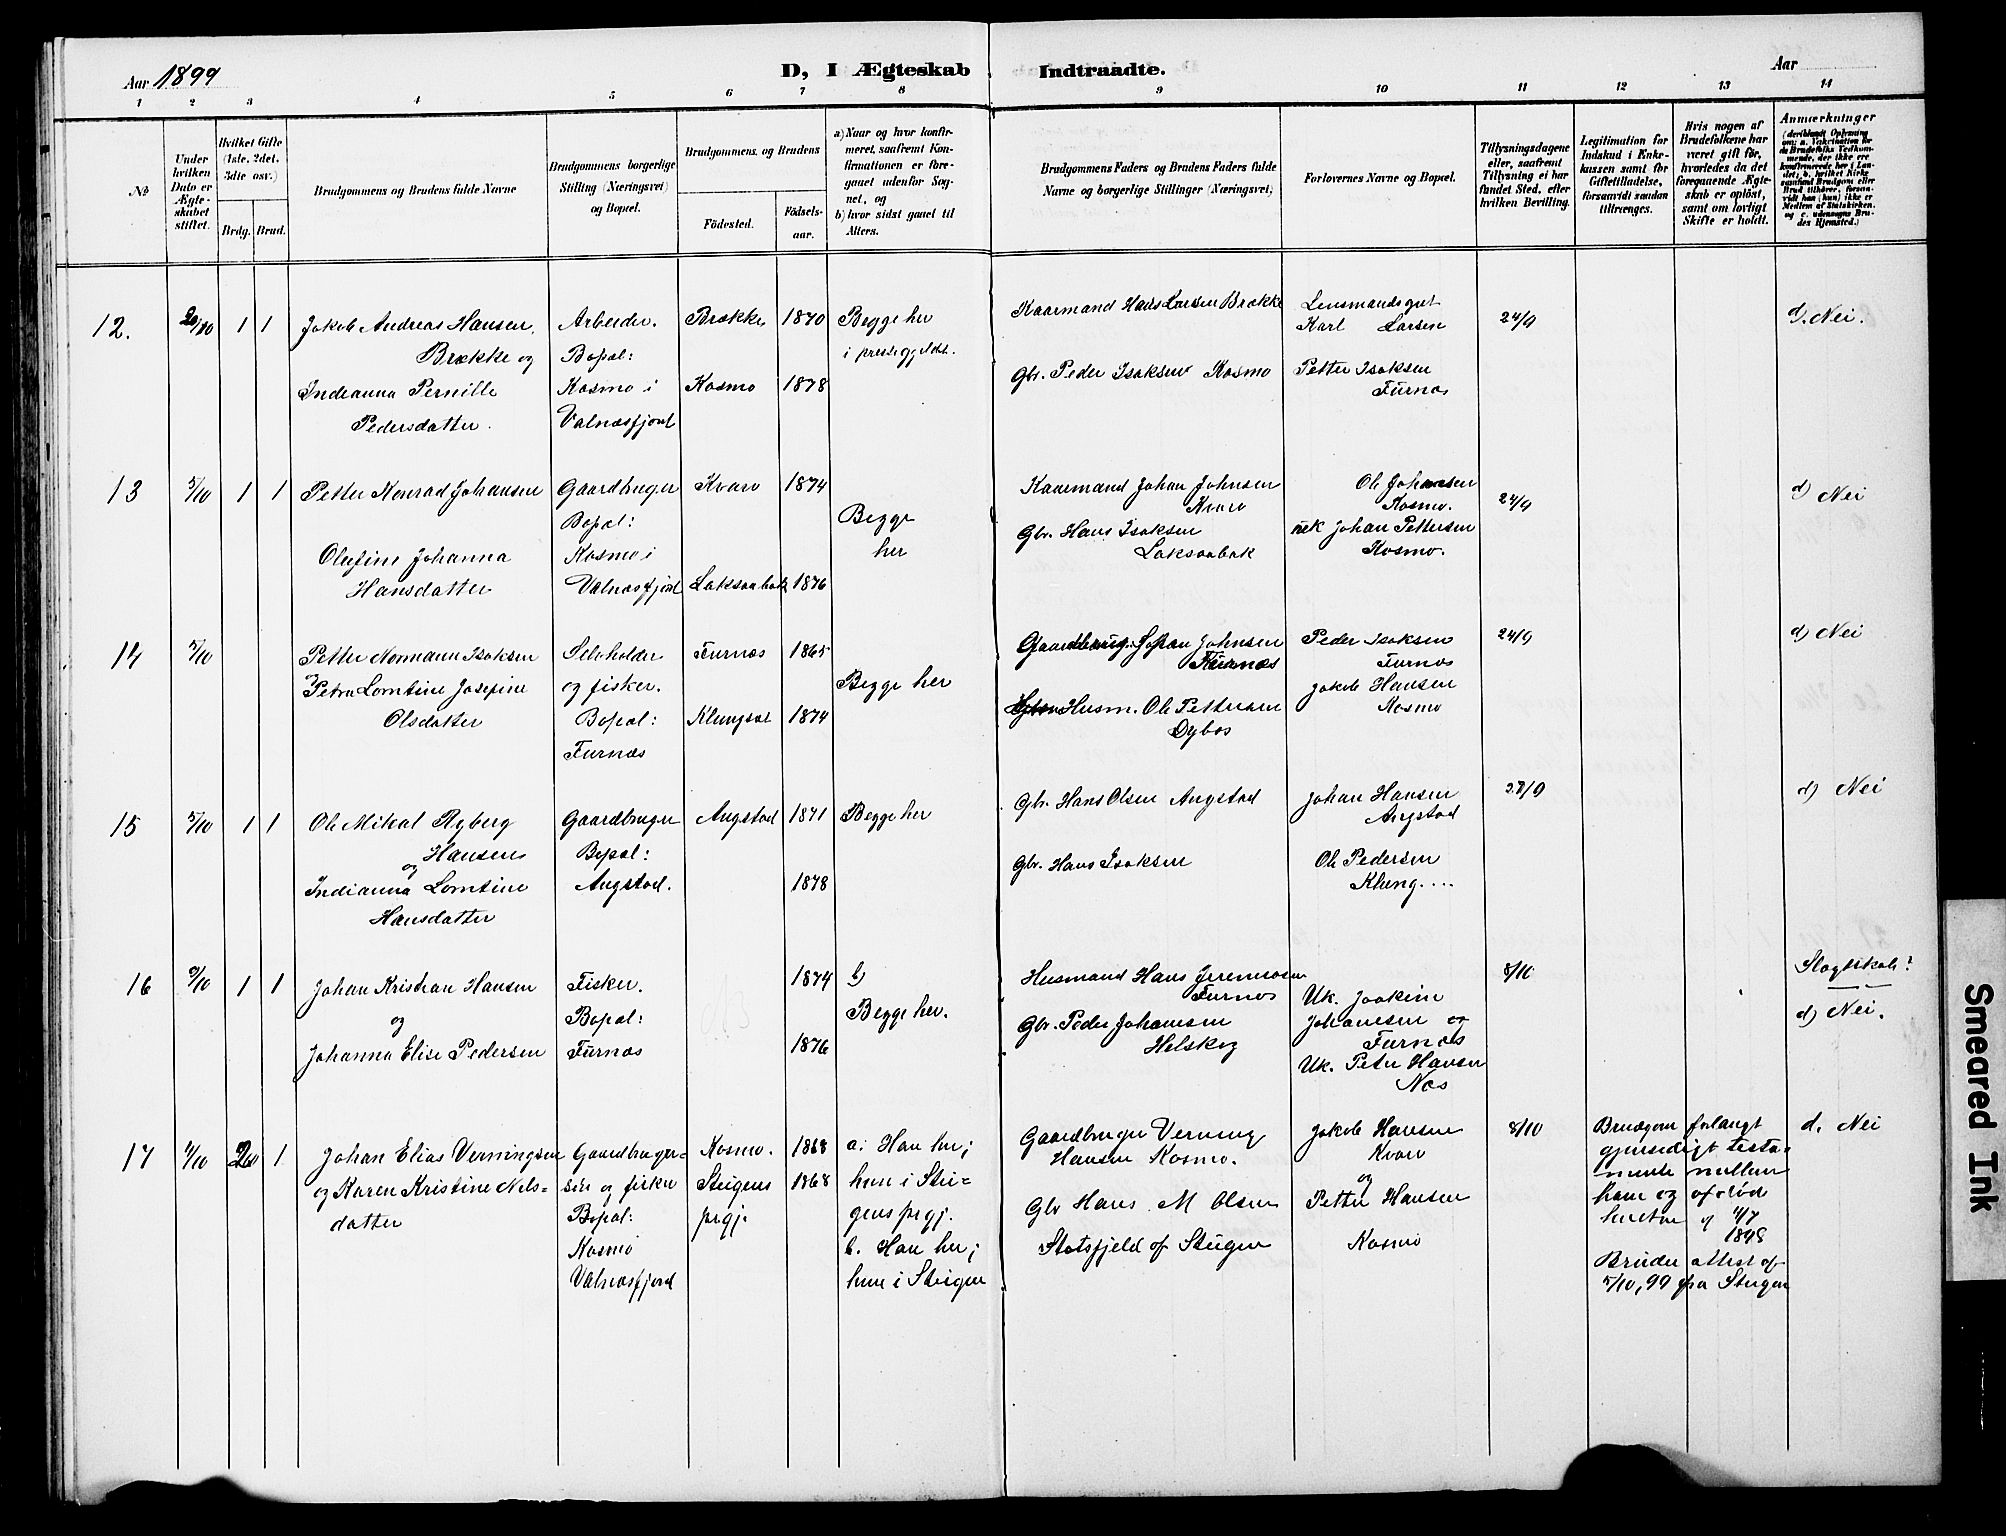 Aar 1899
D, I Ægteskab Indtraadte.
Aar
1 2 3 4 5 6 7 8 9 10 11 12 13 14
№
Under hvilken Dato er Ægteskabet stiftet.
Hvilket Gifte (1ste, 2det, 3dte osv.)
Brdg. Brud.
Brudgommens og Brudens fulde Navne
Brudgommens borgerlige Stilling (Næringsvei) og Bopæl.
Brudgommens og Brudens
Födested.
Födselsaar.
a) Naar og hvor konfirmeret, saafremt Konfirmationen er foregaaet udenfor Sognet, og
b) hvor sidst gaaet til Alters.
Brudgommens Faders og Brudens Faders fulde Navne og borgerlige Stillinger (Næringsvei)
Forlovernes Navne og Bopæl.
Tillysningsdagene eller, saafremt Tillysning ei har fundet Sted, efter hvilken Bevilling.
Legitimation for Indskud i Enkekassen samt for Giftetilladelse, forsaavidt saadan tiltrænges.
Hvis nogen af Brudefolkene har været gift för, hvorledes da det foregaaende Ægteskab er oplöst, samt om lovligt Skifte er holdt.
Anmærkninger
(deriblandt Oplysning om: a. Vakcination for de Brudefolks Vedkommende, der ikke ere konfirmerede her i Landet; b. hvilket Kirkesamfund Brudgom eller Brud tilhører, forsaavidt han (hun) ikke er Medlem af Statskirken, og c. udensogns Brudes Hjemsted.)
12. 20/10 1 1
Jakob Andreas Hansen,
Brække og
Indianna Pernille
Pedersdatter.
Arbeider.
Bopæl:
Kosmo i
Valnæsfjord
Brække 1870
Kosmo 1878
Begge her
i prestegjeldet.
Kaarmand Hans Larsen Brække
Gbr. Peder Isaksen Kosmo
Lensmandsgut
Karl Larsen
Petter Isaksen
Furnæs
24/9
d). Nei.
13 5/10 1 1
Petter Konrad Johansen
Olufine Johanna
Hansdatter
Gaardbruger
Bopæl:
Kosmo i
Valnæsfjord
Kvarv 1874
Laksaabak 1876
Begge
her
Kaarmand Johan Johnsen
Kvarv
Gbr. Hans Isaksen
Laksaabak
Ole Johansen
Kosmo.
Johan Pettersen
Kosmo.
24/9
d) Nei
14 5/10
Petter Normann Isaksen
Petra Lorntine Josefine
Olsdatter
Selvholder
og fisker.
Bopæl:
Furnæs
Furnæs 1865
Klungset 1874
Begge her
Johnsen
Furnæs
Husm. Ole Pettersen
Dybos
Peder Isaksen
Furnæs
Jakob Hansen
Kosmo
24/9
d) Nei
15 5/10 1 1
Ole Mikal Ryberg
Hansen
og
Indianna Lorntine
Hansdatter
Gaardbruger
Bopæl:
Angstad.
Angstad 1871
1878
Begge her
Gbr. Hans Olsen Angstad
Gbr. Hans Isaksen
Johan Hansen
Angstad
Ole Pedersen
Kleng....
d) Nei
16 9/10 1 1
Johan Kristian Hansen
og
Johanna Elise Pedersen
Fisker.
Bopæl:
Furnæs
1874
1876
b)
Begge her.
Husmand Hans Jeremiasen
Furnæs
Gbr. Peder Johansen
Helskog
Uk. Joakim
Johansen og
Furnæs
Uk. Peter Hansen
Næs
8/10
Slægtskab?
d) Nei.
17 1
Johan Elias Verningsen
og Karen Kristine Nils=
datter
Gaardbruger=
søn og fisker
Bopæl:
Kosmo
Valnæsfjord
Kosmo. 1868
Steigens 1868
prgj.
a. Han her;
hun i Stei=
gens prgj.
b. Han her;
hun i Steigen
Gaardbruger Verning
Hansen Kosmo.
Gbr Hans M Olsen
Stotsfjeld af Steigen
Jakob Hansen
Kvarv
og
Petter Hansen
Kosmo
8/10
Brudgom forlangt
gjensidigt testa-
mente mellem
ham og afdød
hustru af
1898
Brudens attest af
5/10, 99 fra Steigen
d. Nei
Smeared Ink